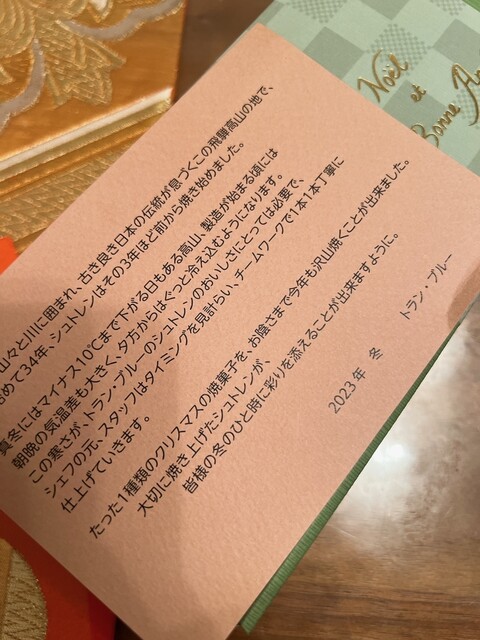 山々と川に囲まれ、古き良き日本の伝統が息づくこの飛騨高山の地で、
めて34年、シュトレンはその3年ほど前から焼き始めました。
真冬にはマイナス10℃まで下がる日もある高山、製造が始まる頃には
朝晩の気温差も大きく、夕方からはぐっと冷え込むようになります。
この寒さが、トラン・ブルーのシュトレンのおいしさにとっては必要で、
シェフの元、スタッフはタイミングを見計らい、チームワークで1本1本丁寧に
仕上げていきます。
たった1種類のクリスマスの焼菓子を、お陰さまで今年も沢山焼くことが出来ました。
大切に焼き上げたシュトレンが、
皆様の冬のひと時に彩りを添えることが出来ますように。
2023年 冬
トラン・ブルー
Noël
et
Bonne